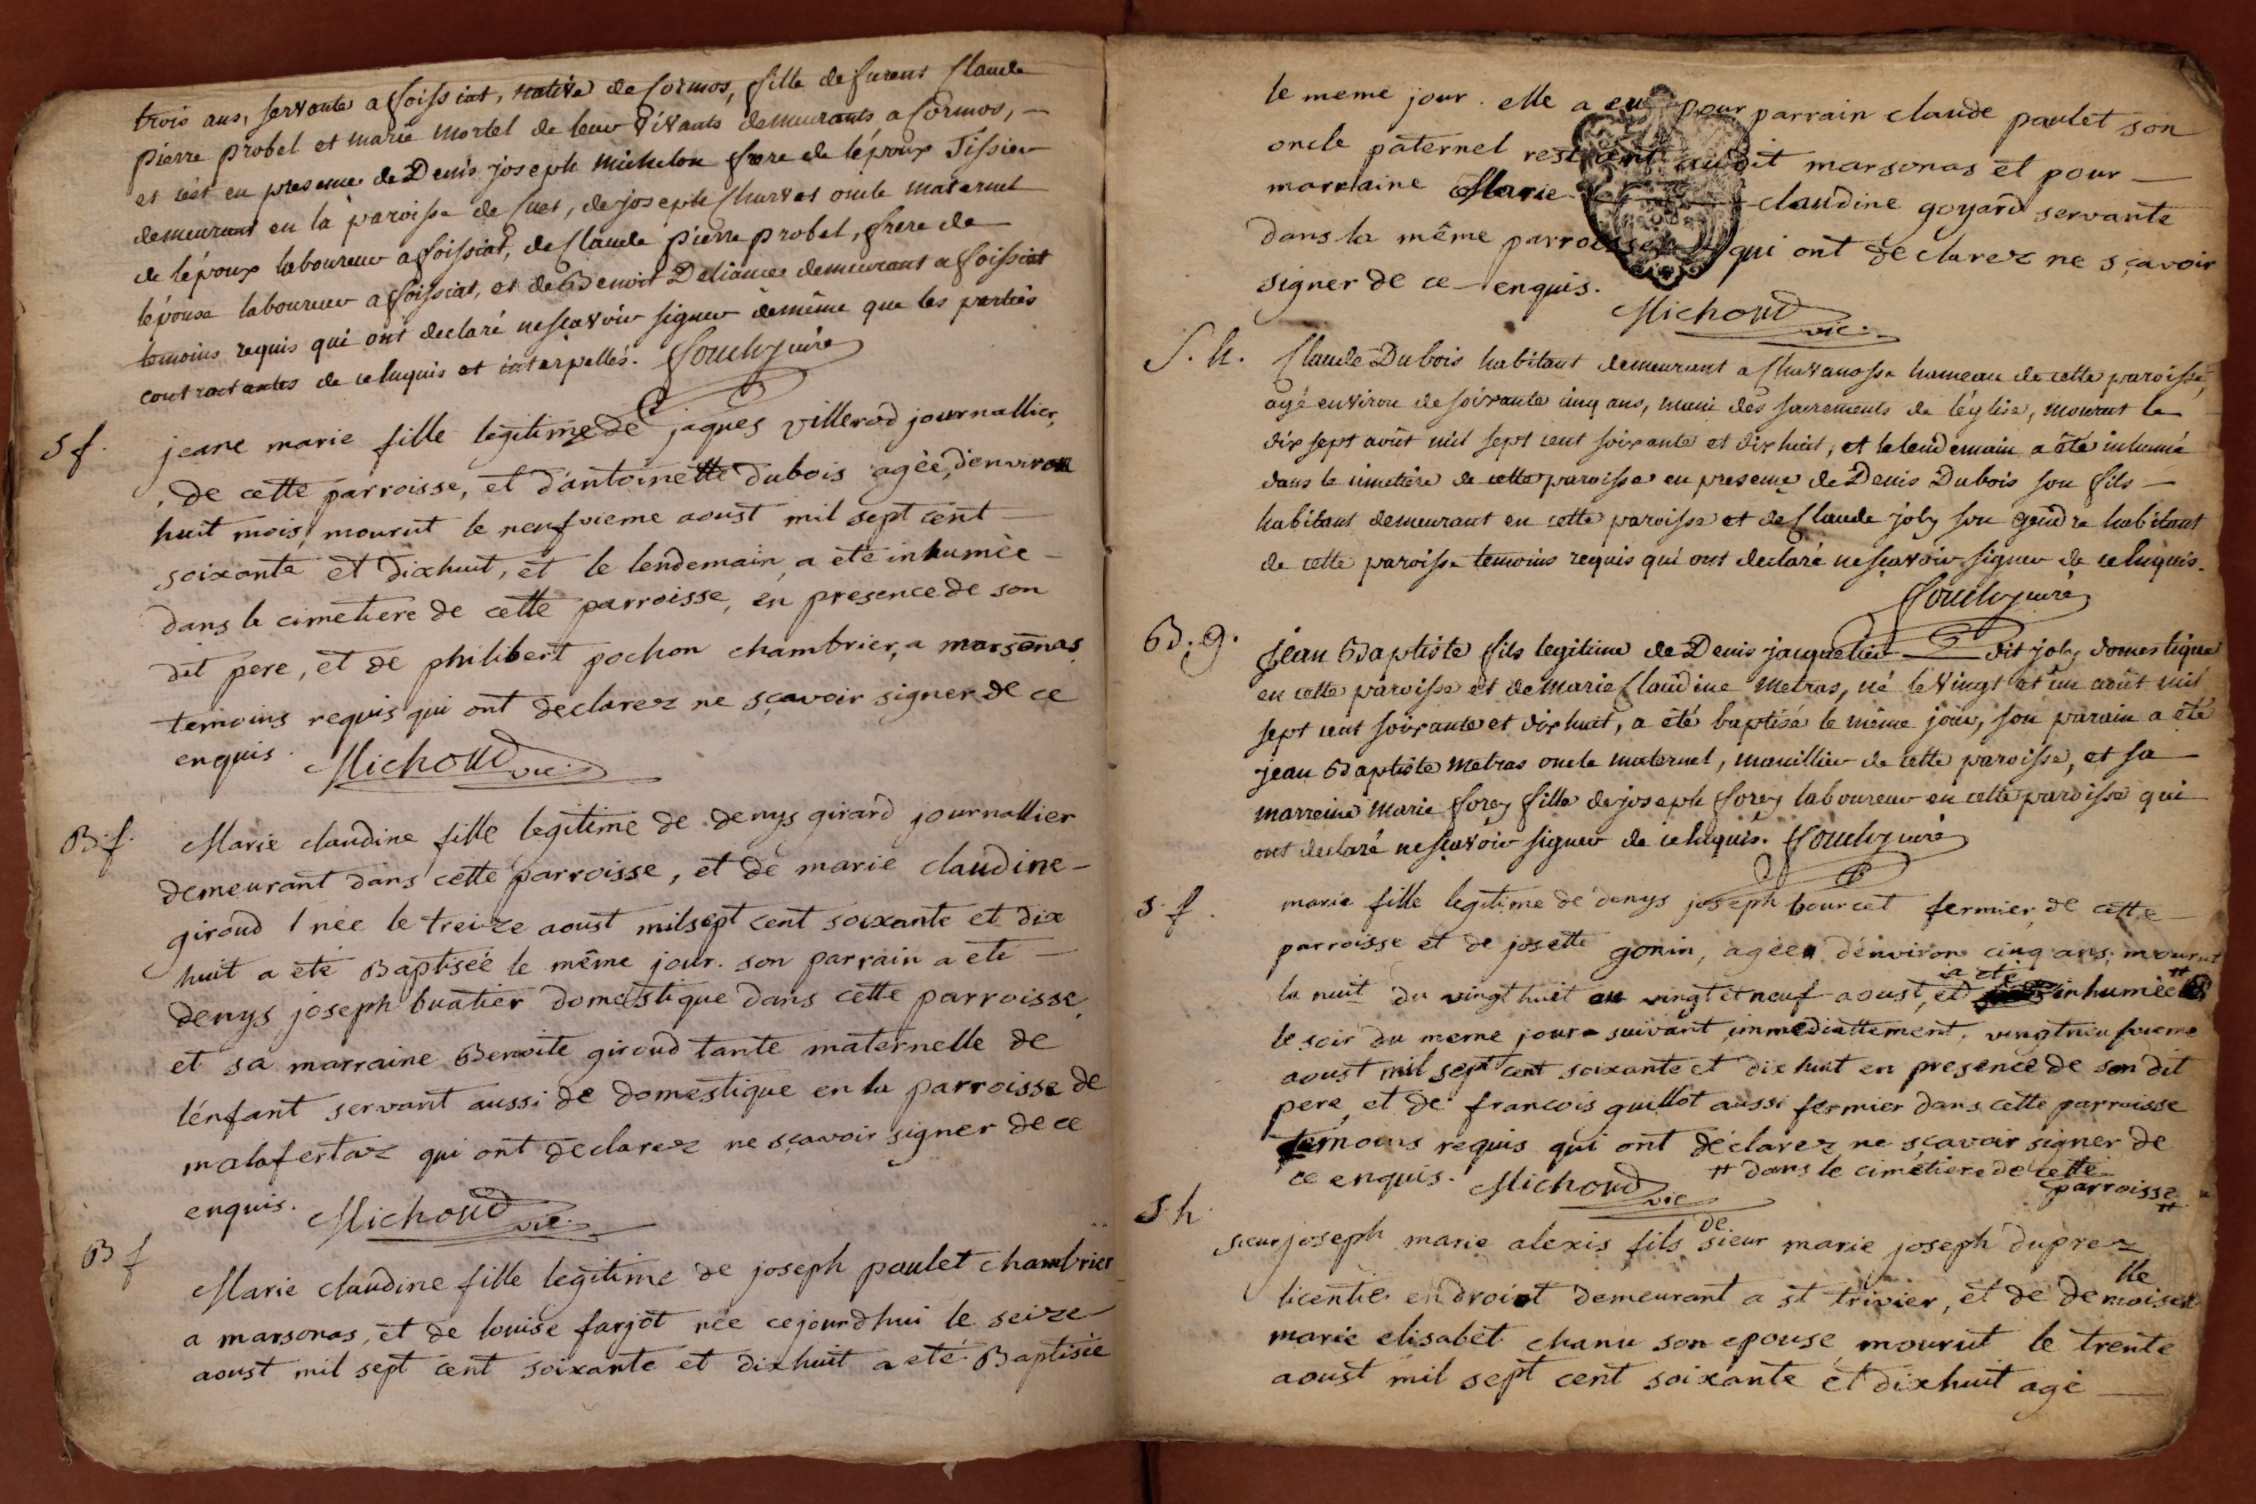 trois ans, servante a foissiat, native de Cormos, fille de furent Claude
pierre probel et marie mortel de leur vivants demeurants a Cormos,
et c'est en presence de Denis joseph michelon frere de l'époux Tissier
demeurant en la paroisse de Cuet, de joseph Charvet oncle maternel
de l'époux laboureur a foissiat, de Claude pierre probel, frere de
l'épouse laboureur a foissiat, et de Benoit Deliance demeurant a foissiat
temoins requis qui ont declaré ne sçavoir signer de même que les parties
contractantes de ce enquis et interpellés.
S f. jeane marie fille legitime de jaques villerod journallier,
de cette parroisse, et d'antoinette dubois agèe, d'environ
huit mois, mourut le neufvieme aoust mil sept cent
soixante et dixhuit, et le lendemain a eté inhumèe
dans le cimetiere de cette parroisse, en presence de son
dit pere, et de philibert pochon chambrier, a marsonas
temoins requis qui ont declarez ne sçavoir signer de ce
enquis. Michoud vic.
B. f. Marie claudine fille legitime de denys girard journallier
demeurant dans cette parroisse, et de marie claudine
giroud née le treize aoust mil sept cent soixante et dix
huit a eté Baptisée le même jour. son parrain a eté
denys joseph buatier domestique dans cette parroisse,
et sa marraine Benoite giroud tante maternelle de
l'énfant servant aussi de domestique en la parroisse de
malafertaz qui ont déclarez ne sçavoir signer de ce
enquis. Michoud vic.
B f Marie claudine fille legitime de joseph paulet chambrier
a marsonas, et de louise farjot née cejourdhui le seize
aoust mil sept cent soixante et dixhuit a eté Baptisée
le meme jour. elle a eu pour parrain claude paulet son
oncle paternel audit marsonas et pour
marraine Marie claudine goyard servante
dans la même parroisse qui ont déclarez ne sçavoir
signer de ce enquis. Michoud vic.
S. h. Claude Dubois habitant demeurant a Chavanosse hameau de cette paroisse,
agé environ de soixante cinq ans, muni des sacrements de l'église, mourut le
dix sept août mil sept cent soixante et dix huit, et le lendemain a été inhumé
dans le cimetière de cette paroisse en presence de Denis Dubois son fils
habitant demeurant en cette paroisse et de Claude joly son gendre habitant
de cette paroisse temoins requis qui ont declaré ne sçavoir signer de ce enquis.
B. g. Jean Baptiste fils legitime de Denis jacquetier dit joly domestique
en cette paroisse et de marie Claudine metras, né le vingt et un août mil
sept cent soixante et dix huit, a été baptisé le même jour, son parain a été
jean Baptiste metras oncle maternel, manillier de cette paroisse, et sa
marreine marie forey fille de joseph forey laboureur en cette paroisse qui
ont declaré ne sçavoir signer de ce enquis.
S. f. marie fille legitime de denys joseph bourcet fermier de cette
parroisse et de josette gonin, agèe d'énviron cinq ans, mourut
la nuit du vingt huit au vingt et neuf aoust, et a eté inhumée #
le soir du meme jour suivant immediattement, vingtneufvieme
aoust mil sept cent soixante et dix huit en presence de son dit
pere, et de francois guillot aussi fermier dans cette parroisse
temoins requis qui ont déclarez ne sçavoir signer de
ce enquis. Michoud vic # dans le cimetiere de cette
parroisse #
S. h. sieur joseph marie alexis fils de sieur marie joseph duprez
licentie en droit demeurant a st trivier, et de demoiselle
marie elisabet chanu son epouse, mourut le trente
aoust mil sept cent soixante et dixhuit agé